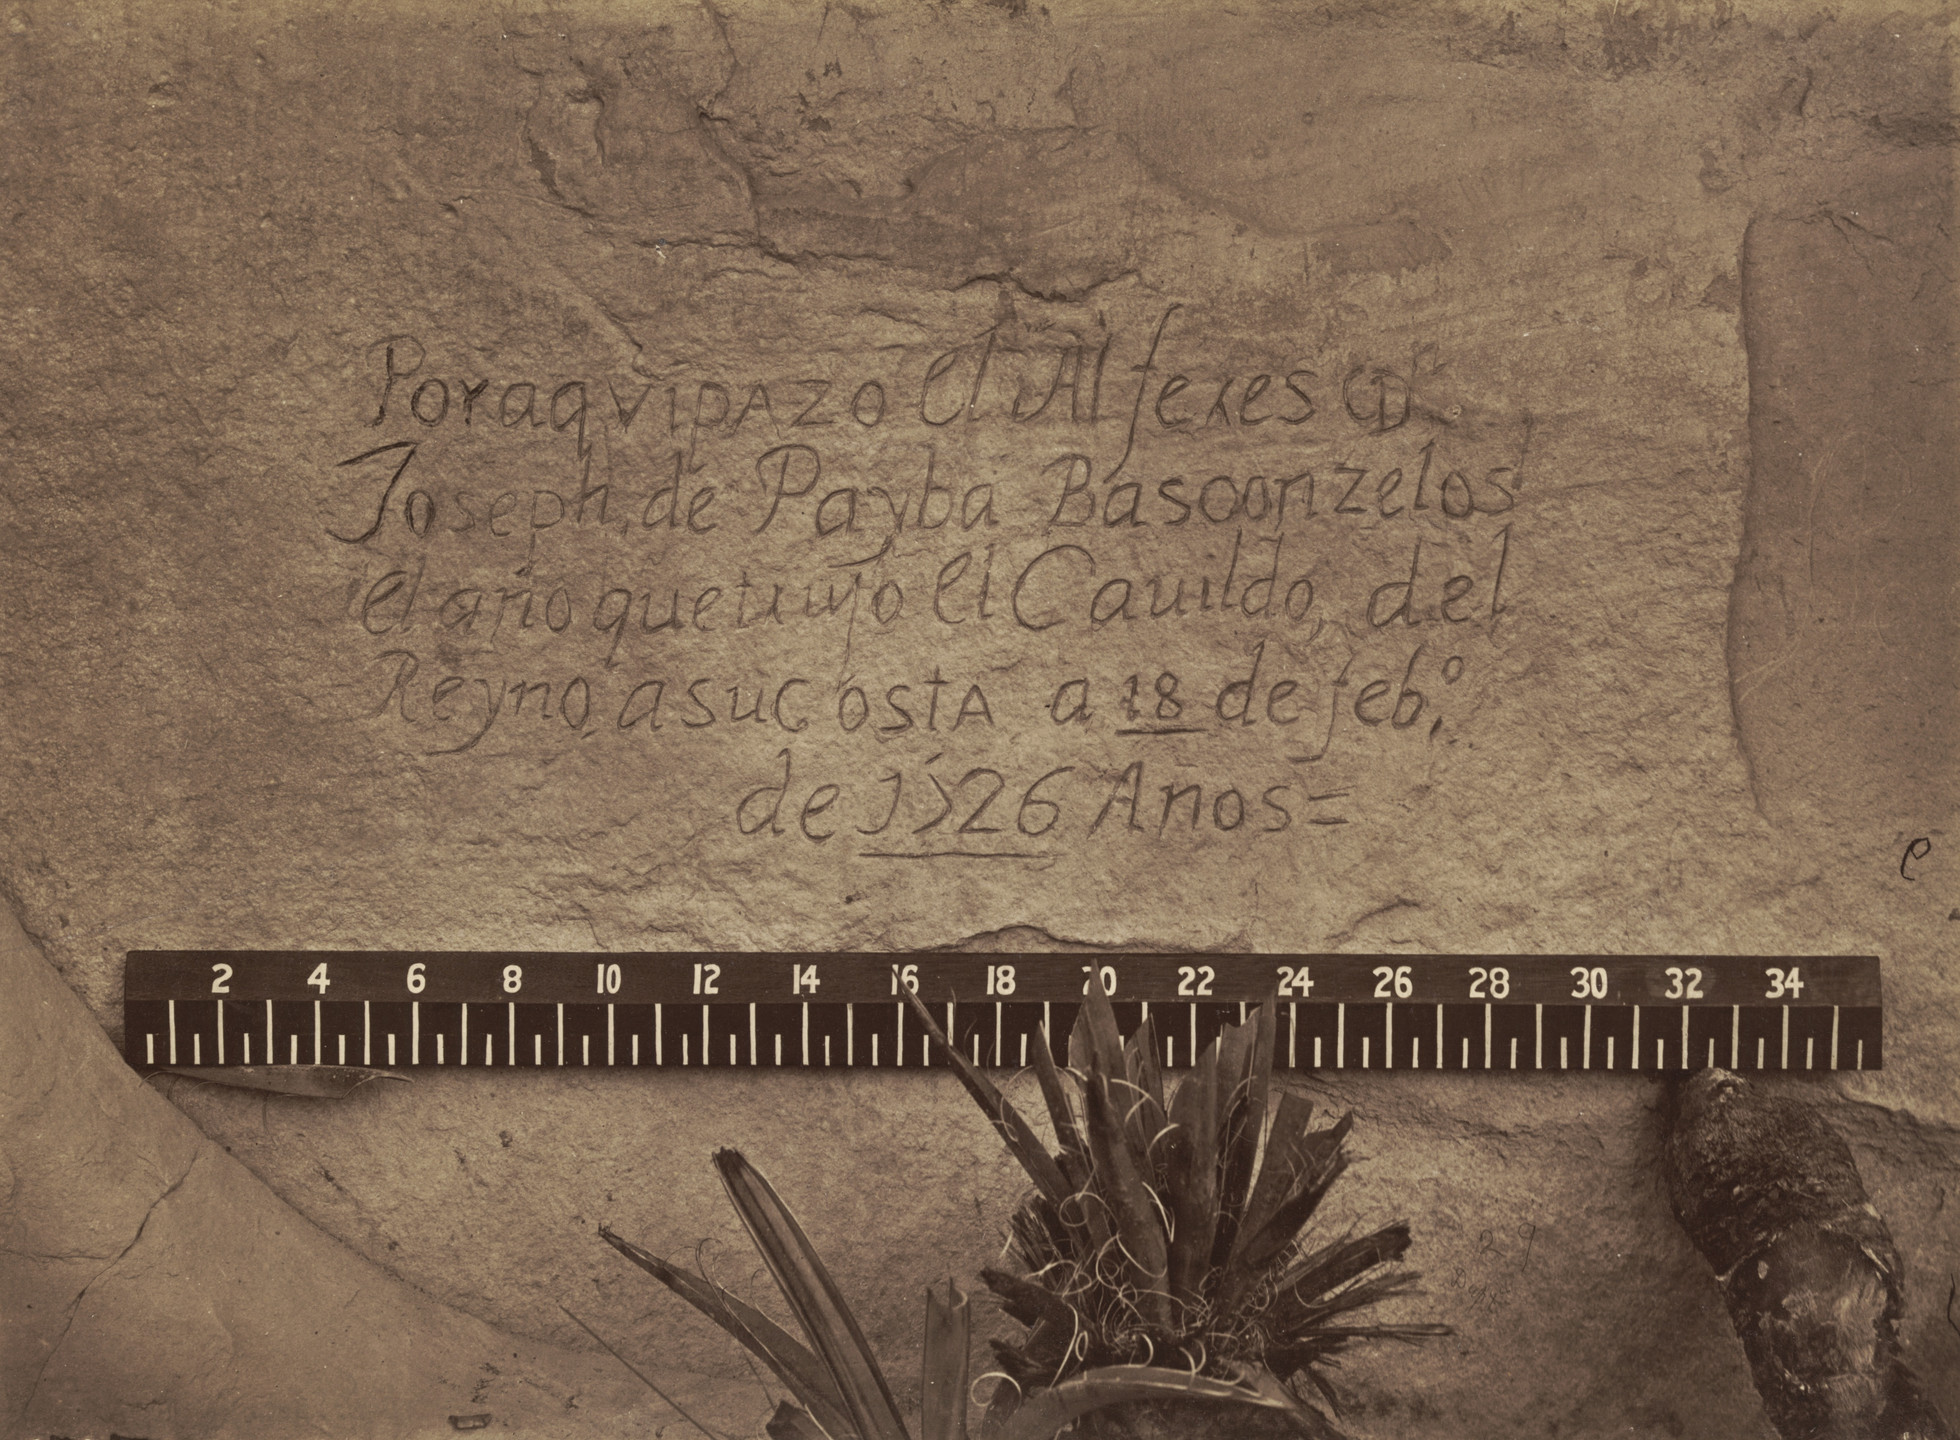 Por aqvi pAzo el Alfexes Dⁿ
Joseph de Payba Basconzelos
el año que trujo el Cauildo del
Reyno a su costA a 18 de feb.º
de 1526 Anos=
2 4 6 8 10 12 14 16 18 20 22 24 26 28 30 32 34
e